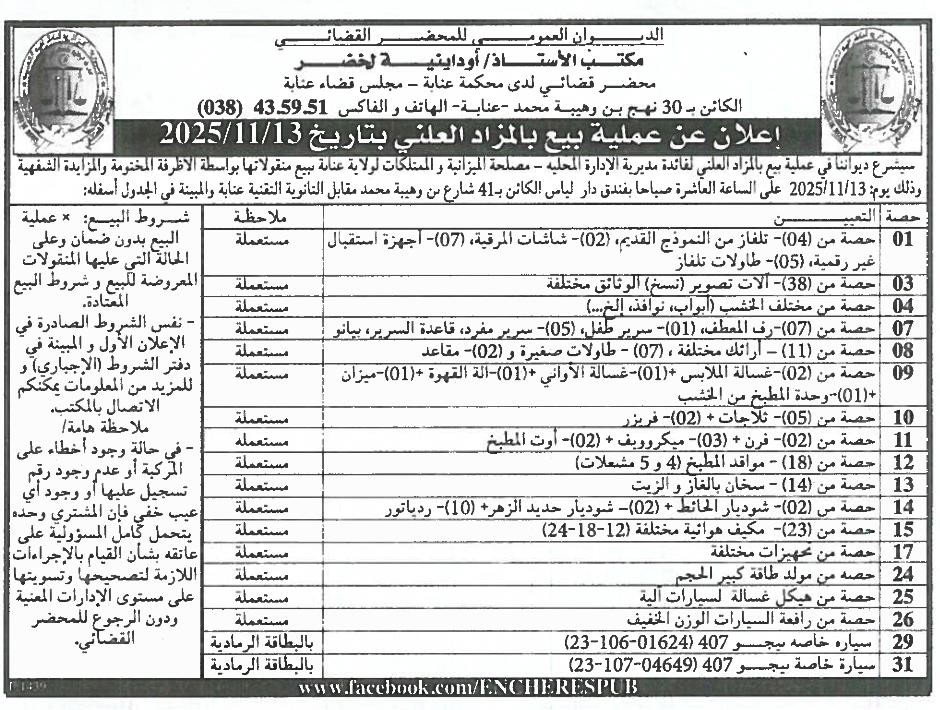 الديوان العمومي للمحضر القضائي
مكتب الأستاذ/ أوداينية لخضر
محضر قضائي لدى محكمة عنابة – مجلس قضاء عنابة
الكائن بـ 30 نهج بن وهيبة محمد -عنابة- الهاتف و الفاكس 43.59.51 (038)
إعلان عن عملية بيع بالمزاد العلني بتاريخ 2025/11/13
سيشرع ديواننا في عملية بيع بالمزاد العلني لفائدة مديرية الإدارة المحلية – مصلحة الميزانية و الممتلكات لولاية عنابة ببيع منقولاتها بواسطة الاظرفة المختومة والمزايدة الشفهية
وذلك يوم: 2025/11/13 على الساعة العاشرة صباحا بفندق دار لياس الكائن بـ41 شارع بن وهيبة محمد مقابل الثانوية التقنية عنابة والمبينة في الجدول أسفله:
حصة التعييــن ملاحظة
01 حصة من (04)- تلفاز من النموذج القديم، (02)- شاشات المرقية، (07)- أجهزة استقبال مستعملة
غير رقمية، (05)- طاولات تلفاز
03 حصة من (38)- آلات تصوير (نسخ) الوثائق مختلفة مستعملة
04 حصة من مختلف الخشب (أبواب، نوافذ، إلخ...) مستعملة
07 حصة من (07)-رف المعطف، (01)- سرير طفل، (05)- سرير مفرد، قاعدة السرير، بيانو مستعملة
08 حصة من (11) – أرائك مختلفة ، (07) - طاولات صغيرة و (02)- مقاعد مستعملة
09 حصة من (02)-غسالة الملابس +(01)-غسالة الأواني +(01)-الة القهوة +(01)-ميزان مستعملة
+(01)-وحدة المطبخ من الخشب
10 حصة من (05)- ثلاجات + (02)- فريزر مستعملة
11 حصة من (02)- فرن + (03)- ميكروويف + (02)- أوت المطبخ مستعملة
12 حصة من (18) - مواقد المطبخ (4 و 5 مشعلات) مستعملة
13 حصة من (14) - سخان بالغاز و الزيت مستعملة
14 حصة من (02)- شوديار الحائط + (02)– شوديار حديد الزهر+ (10)- ردياتور مستعملة
15 حصة من (23)- مكيف هوائية مختلفة (12-18-24) مستعملة
17 حصة من تجهيزات مختلفة مستعملة
24 حصه من مولد طاقة كبير الحجم مستعملة
25 حصة من هيكل غسالة لسيارات آلية مستعملة
26 حصة من رافعة السيارات الوزن الخفيف مستعملة
29 سياره خاصه بيجــو 407 (01624-106-23) بالبطاقة الرمادية
31 سيارة خاصة بيجــو 407 (04649-107-23) بالبطاقة الرمادية
شروط البيع: × عملية
البيع بدون ضمان وعلى
الحالة التي عليها المنقولات
المعروضة للبيع و شروط البيع
المعتادة.
- نفس الشروط الصادرة في
الإعلان الأول و المبينة في
دفتر الشروط (الإجباري) و
للمزيد من المعلومات يمكنكم
الاتصال بالمكتب.
ملاحظة هامة/
- في حالة وجود أخطاء على
المركبة أو عدم وجود رقم
تسجيل عليها أو وجود أي
عيب خفي فإن المشتري وحده
يتحمل كامل المسؤولية على
عاتقه بشأن القيام بالإجراءات
اللازمة لتصحيحها وتسويتها
على مستوى الإدارات المعنية
ودون الرجوع للمحضر
القضائي.
www.facebook.com/ENCHERESPUB